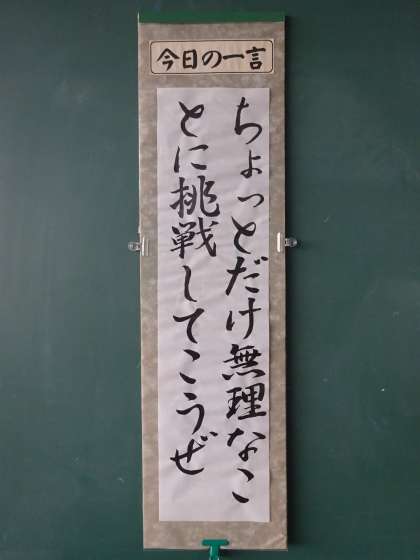 今日の一言
ちょっとだけ無理なこ
とに挑戦してこうぜ